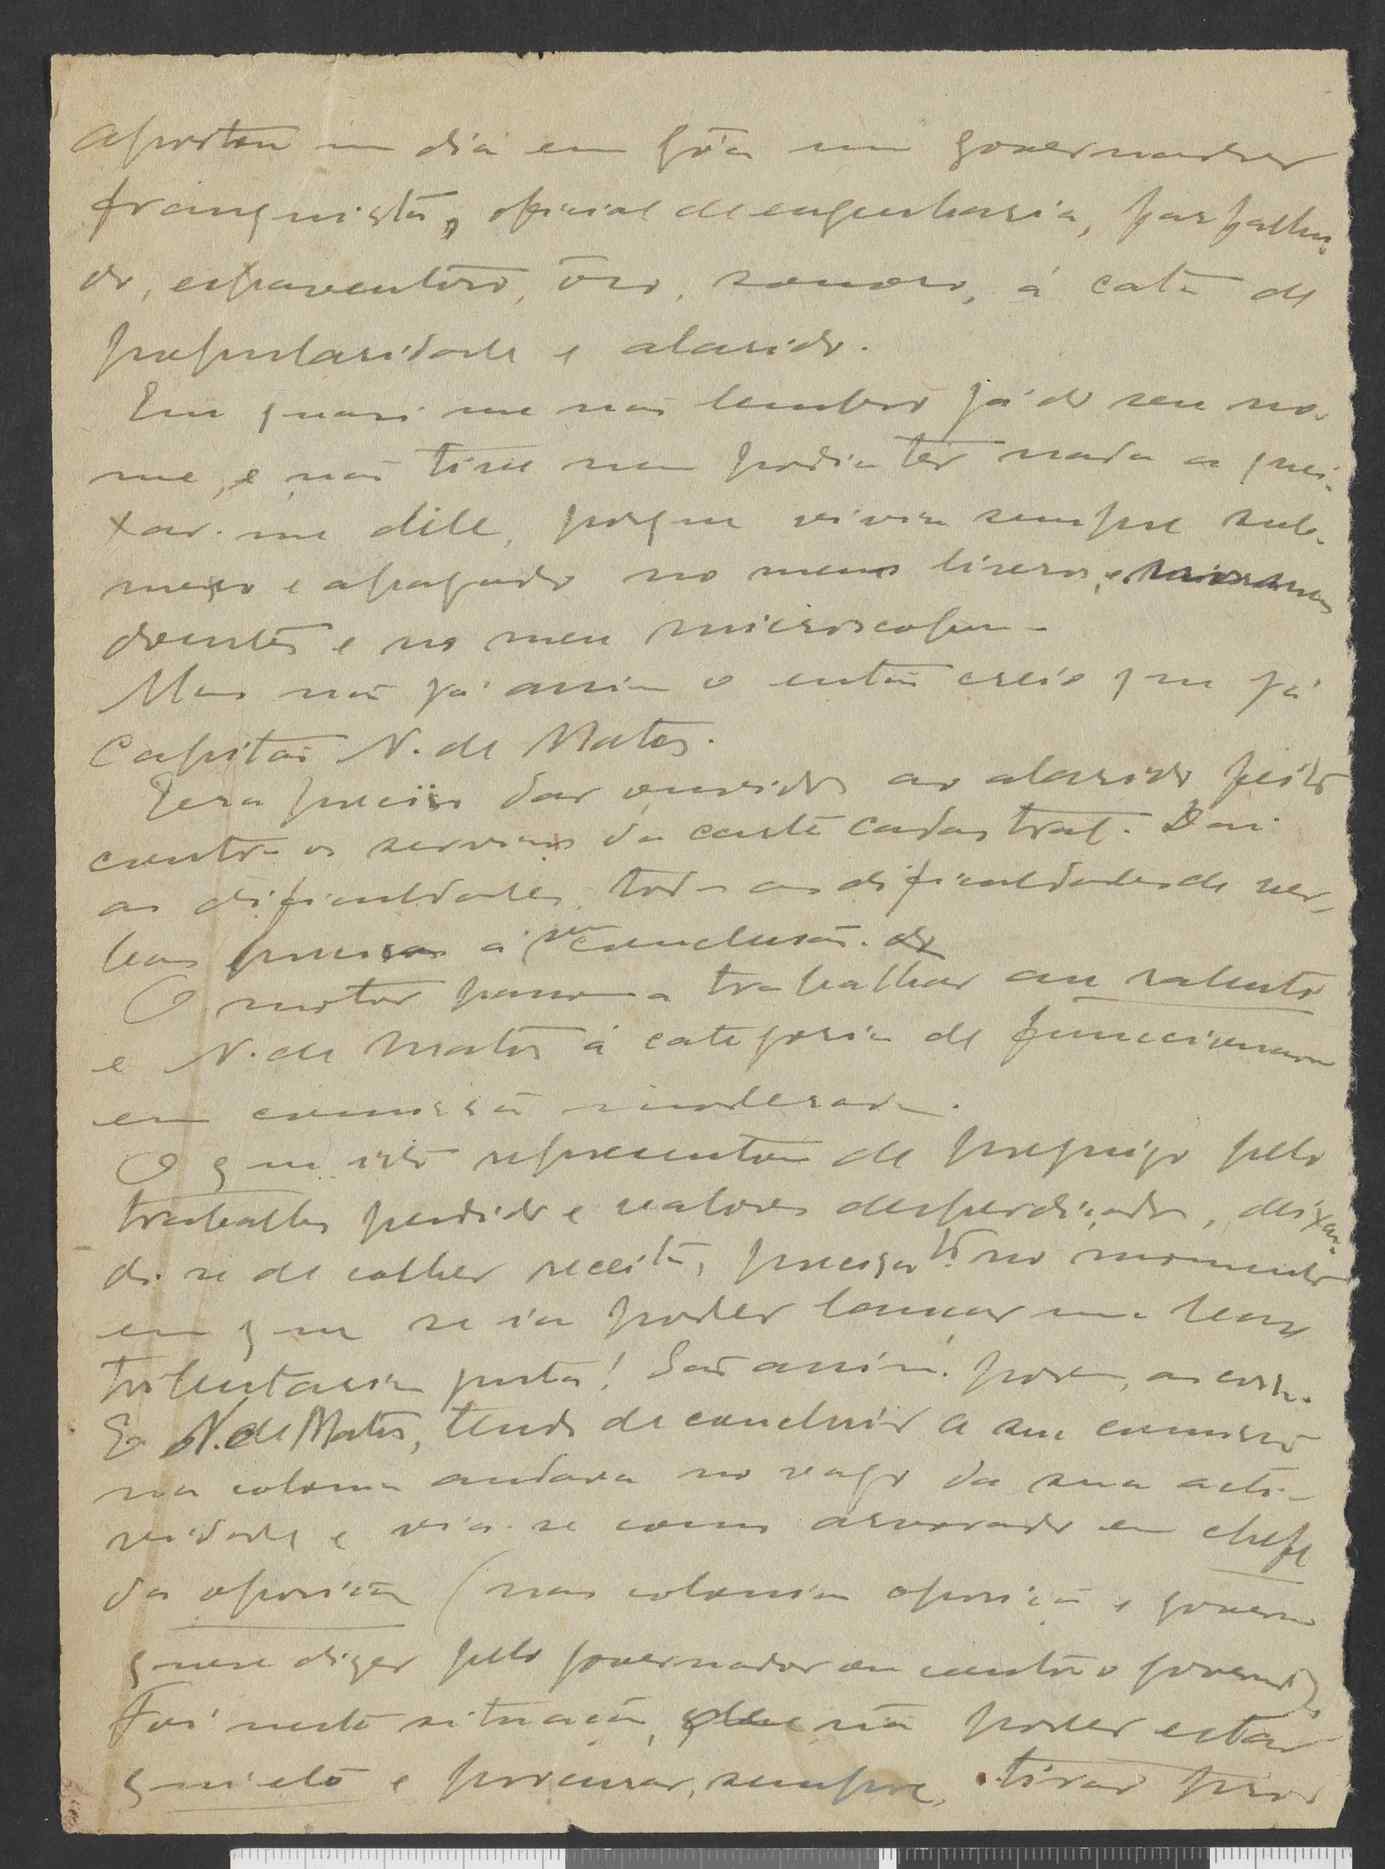 Aportou um dia em Gôa um governador
franquista, oficial de engenharia, farfalhu-
do, espaventoso, ôco, sonoro, á cata de
popularidade e alarido.
Eu quasi me não lembro já do seu no-
me, e não tive nem podia ter nada a quei-
xar-me dele, porque vivia sempre sub-
merso e apagado no meus livros,
doentes e no meu microscopio.
Mas não já assim o então creio que já
Capitão N. de Matos.
Era preciso dar ouvidos ao alarido feito
contra os serviços da carta cadastral. Daí
as dificuldades, todas as dificuldades de ver-
bas precisas á sua conclusão.
O motor passou a trabalhar au ralenti
e N. de Matos á categoria de funccionario
em comissão moderada.
O que isto representou de prejuizo pelo
trabalho perdido e valores desperdiçados, deixan-
do-se de colher receita, precisa no momento
em que se ia poder lançar uma base
tributaria justa! São assim, porem, as coisas.
E N. de Matos, tendo de concluir a sua comissão
na colonia andava no vago da sua acti-
vidade e via-se como arvorado em chefe
da oposição (nas colonias oposição e governo
quere dizer pelo governador ou contra o governador).
Foi nesta situação, de não poder estar
quieto e procurar, sempre, tirar pro